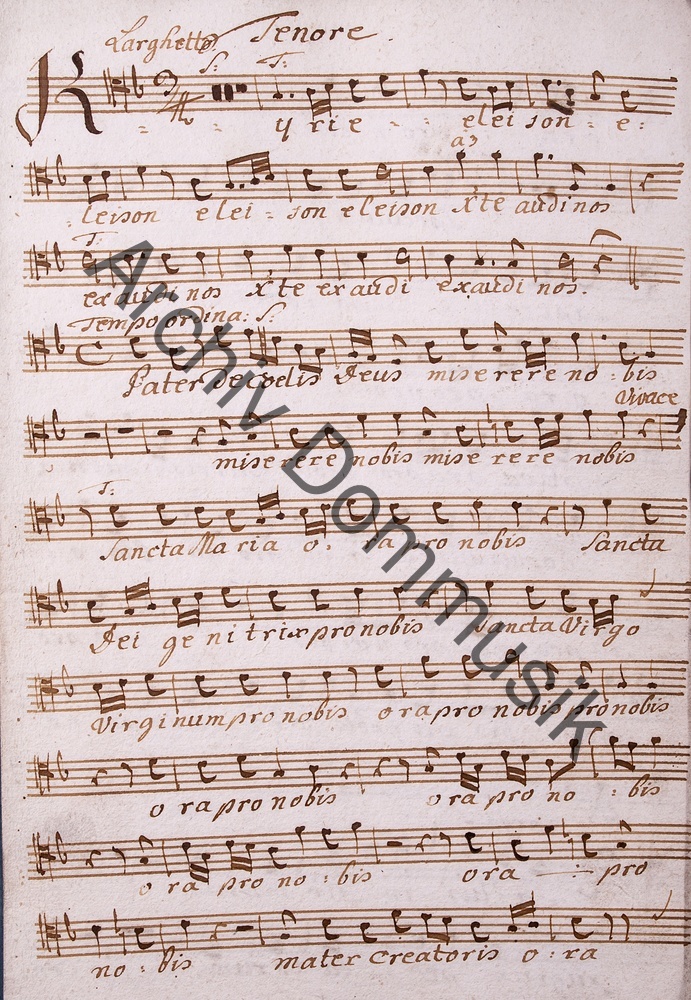 Larghetto. Tenore.
S: T:
K
yrie - - eleison - e:
à3
leison elei - son eleison X'te audi nos
T:
exaudi nos X'te exaudi exaudi nos.
Tempo ordina: S:
Pater de Coelis Deus miserere no - bis
Vivace
miserere nobis miserere nobis
T:
Sancta Maria o - ra pro nobis Sancta
Dei genitrix pro nobis Sancta Virgo
Virginum pro nobis ora pro nobis pro nobis
ora pro nobis ora pro no - bis
ora pro no - bis ora pro
no - bis mater Creatoris o - ra
Archiv Dommusik